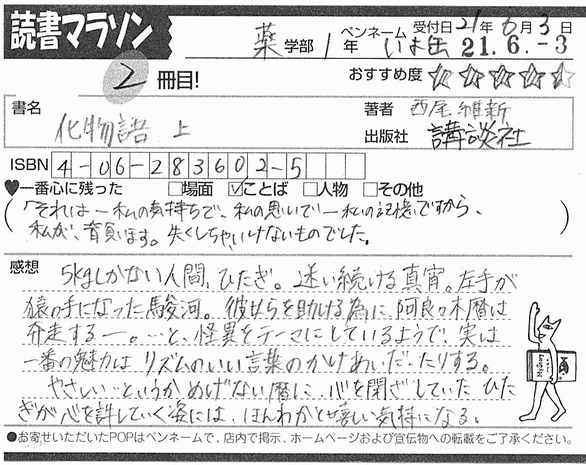 読書マラソン
薬 学部 1年 ペンネーム いよ缶 受付日 21年6月3日
21.6.-3
2 冊目! おすすめ度 ☆☆☆☆☆
書名 化物語 上
著者 西尾維新
出版社 講談社
ISBN 4-06-283602-5
♥一番心に残った □場面 ☑ことば □人物 □その他
「それは―私の気持ちで、私の思いで―私の記憶ですから、
私が、背負います。失くしちゃいけないものでした。
感想 5kgしかない人間、ひたぎ。迷い続ける真宵。左手が
猿の手になった駿河。彼女らを助ける為に、阿良々木暦は
奔走する―。…と、怪異をテーマにしているようで、実は
一番の魅力は、リズムのいい言葉のかけあいだったりする。
やさしい…というかめげない暦に、心を閉ざしていたひた
ぎが心を許していく姿には、ほんわかと嬉しい気持になる。
●お寄せいただいたPOPはペンネームで、店内で掲示、ホームページおよび宣伝物への転載をご了承ください。